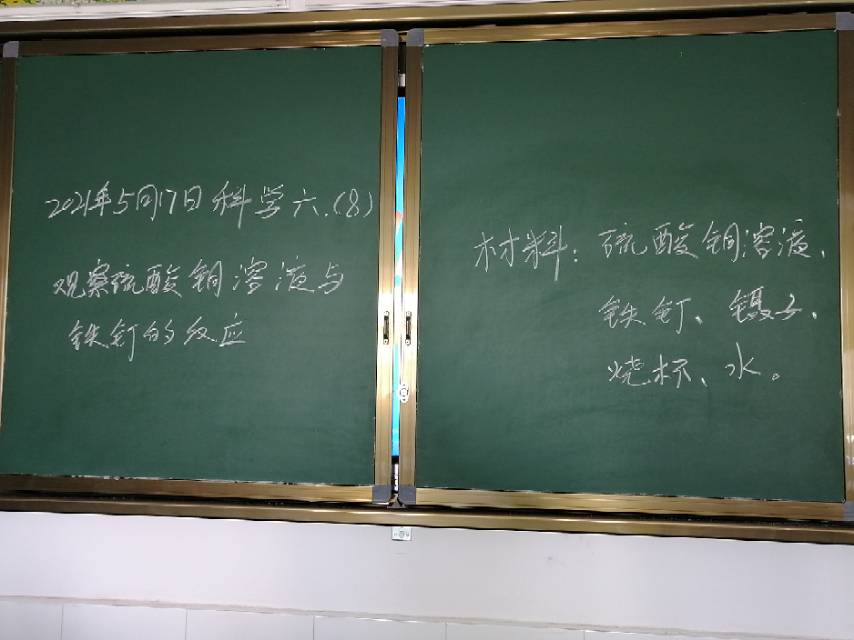 2021年5月17日 科学 六.(8)
观察硫酸铜溶液与
铁钉的反应
材料：硫酸铜溶液、
铁钉、镊子、
烧杯、水。